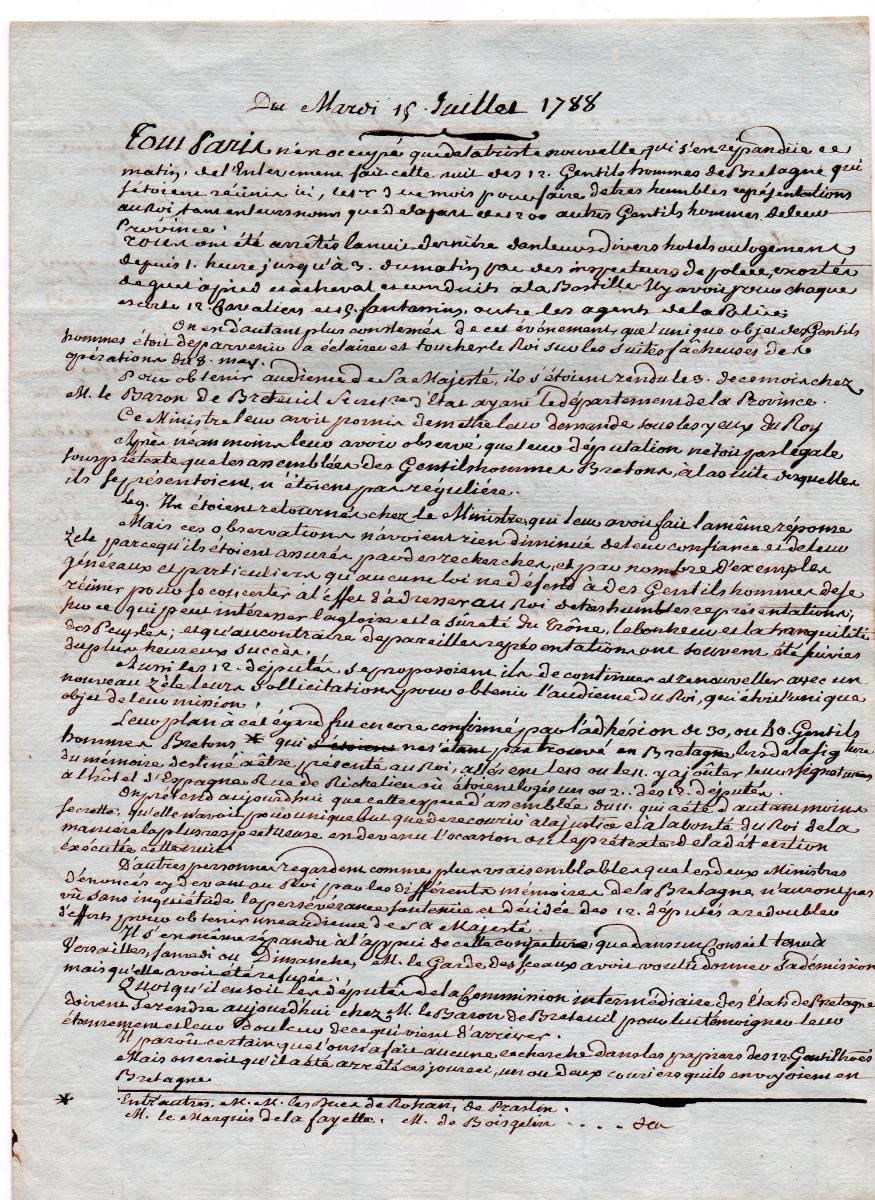 Du Mardi 15 Juillet 1788
Tout Paris n'est occupé que de la triste nouvelle qui s'est répandüe ce
matin, de l'Enlevement fait cette nuit des 12. Gentilshommes de Bretagne qui
s'étoient réünis ici, les du mois pour faire de très humbles représentations
au Roi, tant en leurs noms que de la part de 1200 autres Gentilshommes de leur
Province.
Tous ont été arrêtés la nuit dernière dans leurs divers hotels ou logements
depuis 1. heure jusqu'à 3. du matin par des inspecteurs de police, escortés
de guet à pied et à cheval et conduits à la Bastille. Il y avoit pour chaque
escorte 12. Cavaliers et 15. fantassins, outre les agents de la Police.
On est d'autant plus consterné de cet événement, que l'unique objet des Gentils
hommes étoit de parvenir à éclairer et toucher le Roi sur les suites fâcheuses des
opérations du 8. may.
Pour obtenir audience de Sa Majesté, ils s'étoient rendu le 5. de ce mois chez
M. le Baron de Breteuil Secretre d'Etat ayant le département de la Province.
Ce Ministre leur avoit promis de mettre leur demande sous les yeux du Roy
Après néanmoins leur avoir observé que leur députation n'etoit pas légale
sous prétexte que les assemblées des Gentilshommes Bretons, à la suite desquelles
ils se présentoient, n'étoient pas réguliére.
Le 9. Ils étoient retournés chez le Ministre, qui leur avoit fait la même réponse
Mais ces observations n'avoient rien diminué de leur confiance et de leur
Zele parcequ'ils étoient assurés par des recherches, et par nombre d'exemples
généraux et particuliers qu'aucune loi ne défend à des Gentilshommes de se
réünir pour se concerter à l'effet d'adresser au Roi de très humbles représentations,
sur ce qui peut intéresser la gloire et la Sûreté du Trône, le bonheur et la tranquilité
des Peuples; et qu'au contraire de pareilles représentations ont souvent été suivies
du plus heureux succès.
Aussi les 12. députés se proposoient ils de continuer et renouveller avec un
nouveau zèle leurs sollicitations pour obtenir l'audience du Roi, qui étoit l'unique
objet de leur mission.
Leur plan à cet égard fut encore confirmé par l'adhésion de 30, ou 40. Gentils
hommes Bretons * qui s'étoient ne s'étant pas trouvé en Bretagne lors de la sig
du mémoire destiné à être présenté au Roi, allés en le 10 ou le 11. y ajoûter leurs signatures
à l'hôtel d'Espagne Rue de Richelieu où étoient logés un ou 2. des 12. députés.
On prétend aujourd'hui que cette espece d'assemblée du 11. qui a été d'autant moins
secrette, qu'elle n'avoit pour unique but que de recourir à la justice et à la bonté du Roi de la
maniere la plus respectueuse en devenu l'occasion ou le prétexte de la détention
éxécutée cette nuit.
D'autres personnes regardent comme plus vraisemblable que les deux Ministres
dénoncés cy devant au Roi par les différents mémoires de la Bretagne n'auront pas
vû sans inquiétude la persévérance soutenüe et décidée des 12. députés à redoubler
d'efforts pour obtenir une audience de Sa Majesté.
Il s'est même répandu à l'appui de cette conjecture, que dans un Conseil tenu à
Versailles, samedi ou Dimanche, M. le Garde des Sceaux avoit voulu donner sa démission
mais qu'elle avoit été refusée.
Quoiqu'il en soit les députés de la Commission intermédiaire des Etats de Bretagne
doivent se rendre aujourd'hui chez M. le Baron de Breteuil pour lui témoigner leur
étonnement et leur douleur de ce qui vient d'arriver.
Il paroît certain que l'on n'a fait aucune recherche dans les papiers des 12. Gentilshoes
Mais on croit qu'il a été arrêté ces jours ci, un ou deux couriers qu'ils envoyoient en
Bretagne
* Entr'autres, M. M. les Ducs de Rohan, de Praslin,
M. le Marquis de la fayette, M. de Boisgelin . . . . &ca